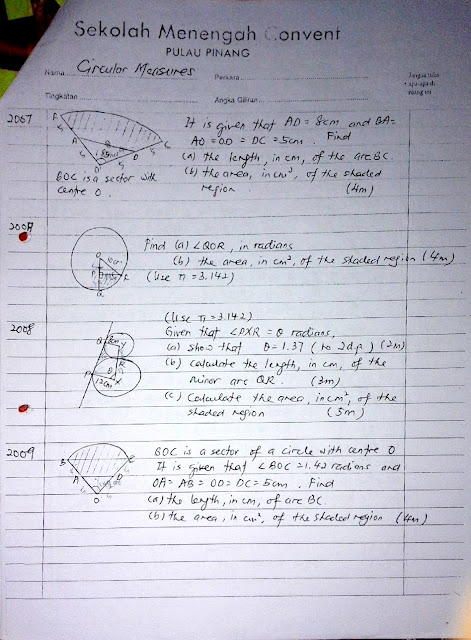 Sekolah Menengah Convent
PULAU PINANG
Nama Circular Measures Perkara
Tingkatan Angka Giliran
2007
It is given that AD = 8cm and BA=
AO = OD = DC = 5cm. Find
(a) the length, in cm, of the arc BC
(b) the area, in cm², of the shaded
region (4m)
BOC is a sector with
centre O.
Find (a) ∠QOR, in radians
(b) the area, in cm², of the shaded region (4m)
(Use π = 3.142)
2008
(Use π = 3.142)
Given that ∠PXR = θ radians,
(a) show that θ = 1.37 (to 2dp) (2m)
(b) calculate the length, in cm, of the
minor arc QR. (3m)
(c) Calculate the area, in cm², of the
shaded region (5m)
2009
BOC is a sector of a circle with centre O
It is given that ∠BOC = 1.42 radians and
OA = AB = OD = DC = 5cm. Find
(a) the length, in cm, of arc BC.
(b) the area, in cm², of the shaded region (4m)